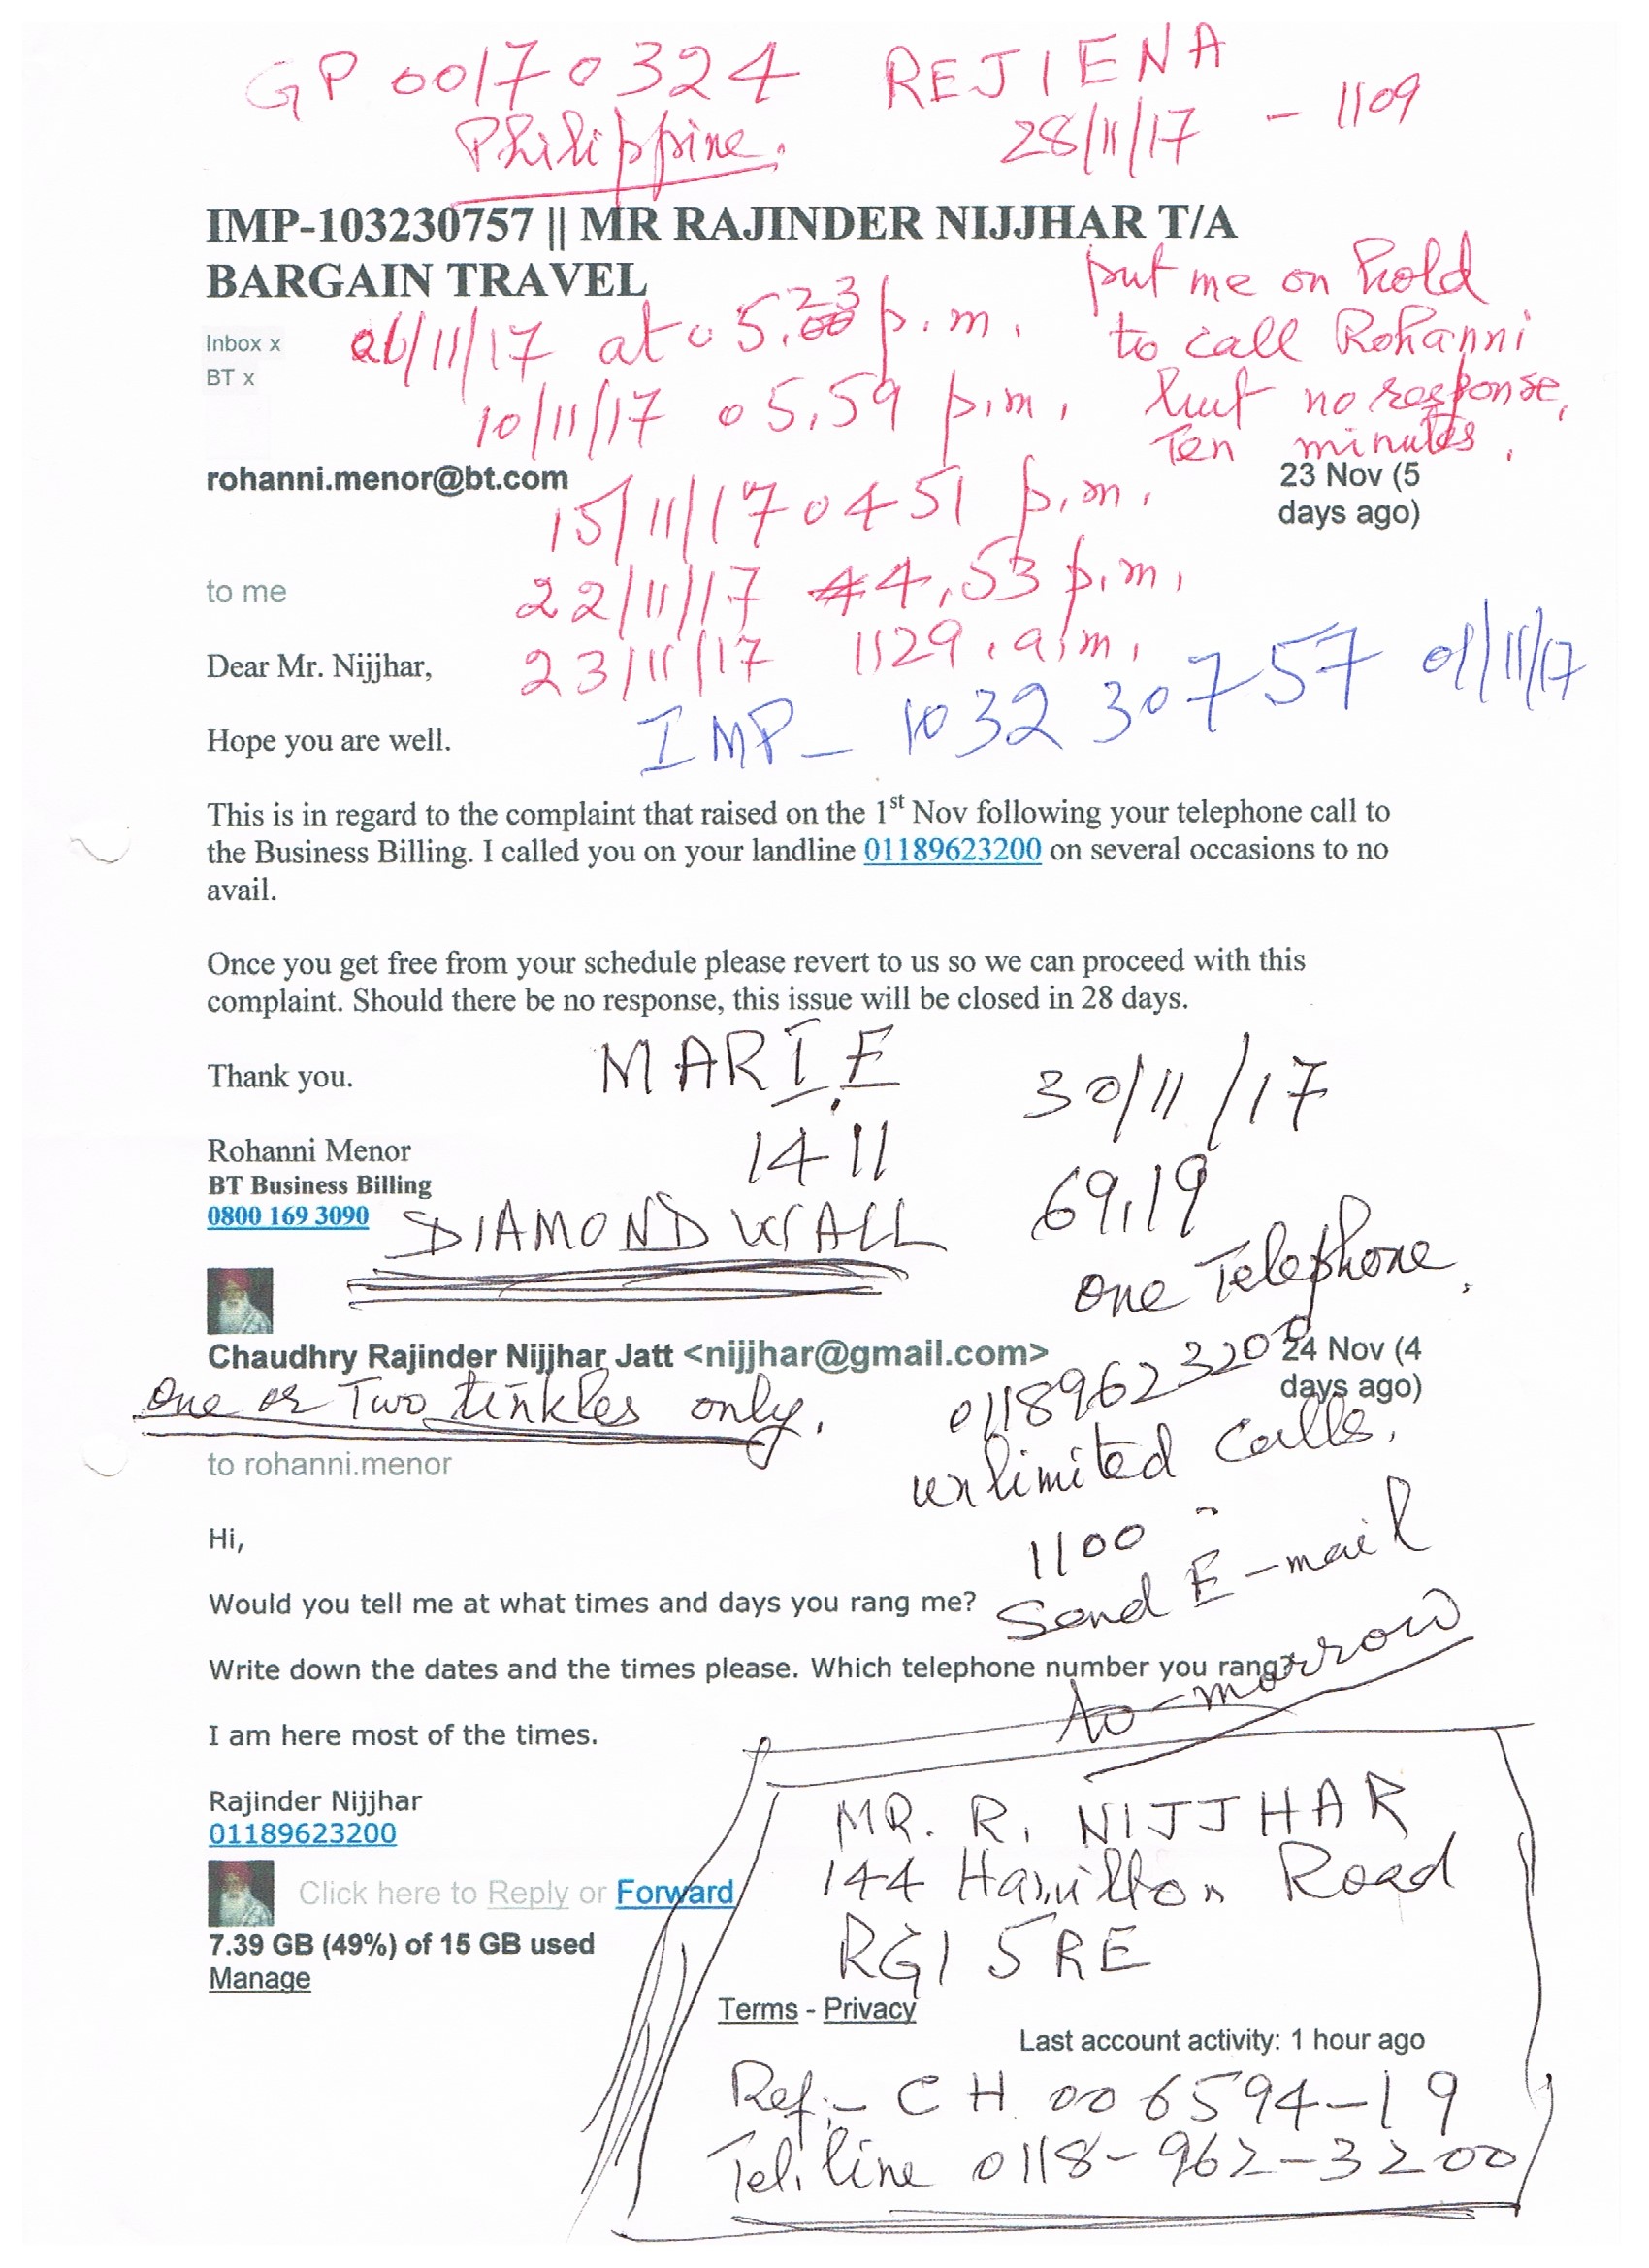 GP 00170324 REJIENA
Philippine. 28/11/17 - 1109
IMP-103230757 || MR RAJINDER NIJJHAR T/A
BARGAIN TRAVEL
put me on hold
to call Rohanni
but no response,
Ten minutes.
Inbox x
BT x
06/11/17 at 05.23 p.m.
10/11/17 05.59 p.m.
rohanni.menor@bt.com
23 Nov (5
days ago)
15/11/17 0451 p.m.
to me
22/11/17 4.53 p.m.
Dear Mr. Nijjhar,
23/11/17 1129.a.m.
IMP_ 103230757 01/11/17
Hope you are well.
This is in regard to the complaint that raised on the 1st Nov following your telephone call to
the Business Billing. I called you on your landline 01189623200 on several occasions to no
avail.
Once you get free from your schedule please revert to us so we can proceed with this
complaint. Should there be no response, this issue will be closed in 28 days.
Thank you.
MARIE 30/11/17
1411
Rohanni Menor
BT Business Billing
0800 169 3090
DIAMOND WALL
69.19
One Telephone.
Chaudhry Rajinder Nijjhar Jatt <nijjhar@gmail.com>
24 Nov (4
days ago)
One or Two tinkles only.
01189623200
unlimited calls.
to rohanni.menor
Hi,
1100 -
Send E-mail
to-morrow
Would you tell me at what times and days you rang me?
Write down the dates and the times please. Which telephone number you rang?
I am here most of the times.
Rajinder Nijjhar
01189623200
Click here to Reply or Forward
7.39 GB (49%) of 15 GB used
Manage
MR. R. NIJJHAR
144 Hamilton Road
RG1 5RE
Terms - Privacy
Last account activity: 1 hour ago
Ref:- CH 006594-19
Tel. line 0118-962-3200